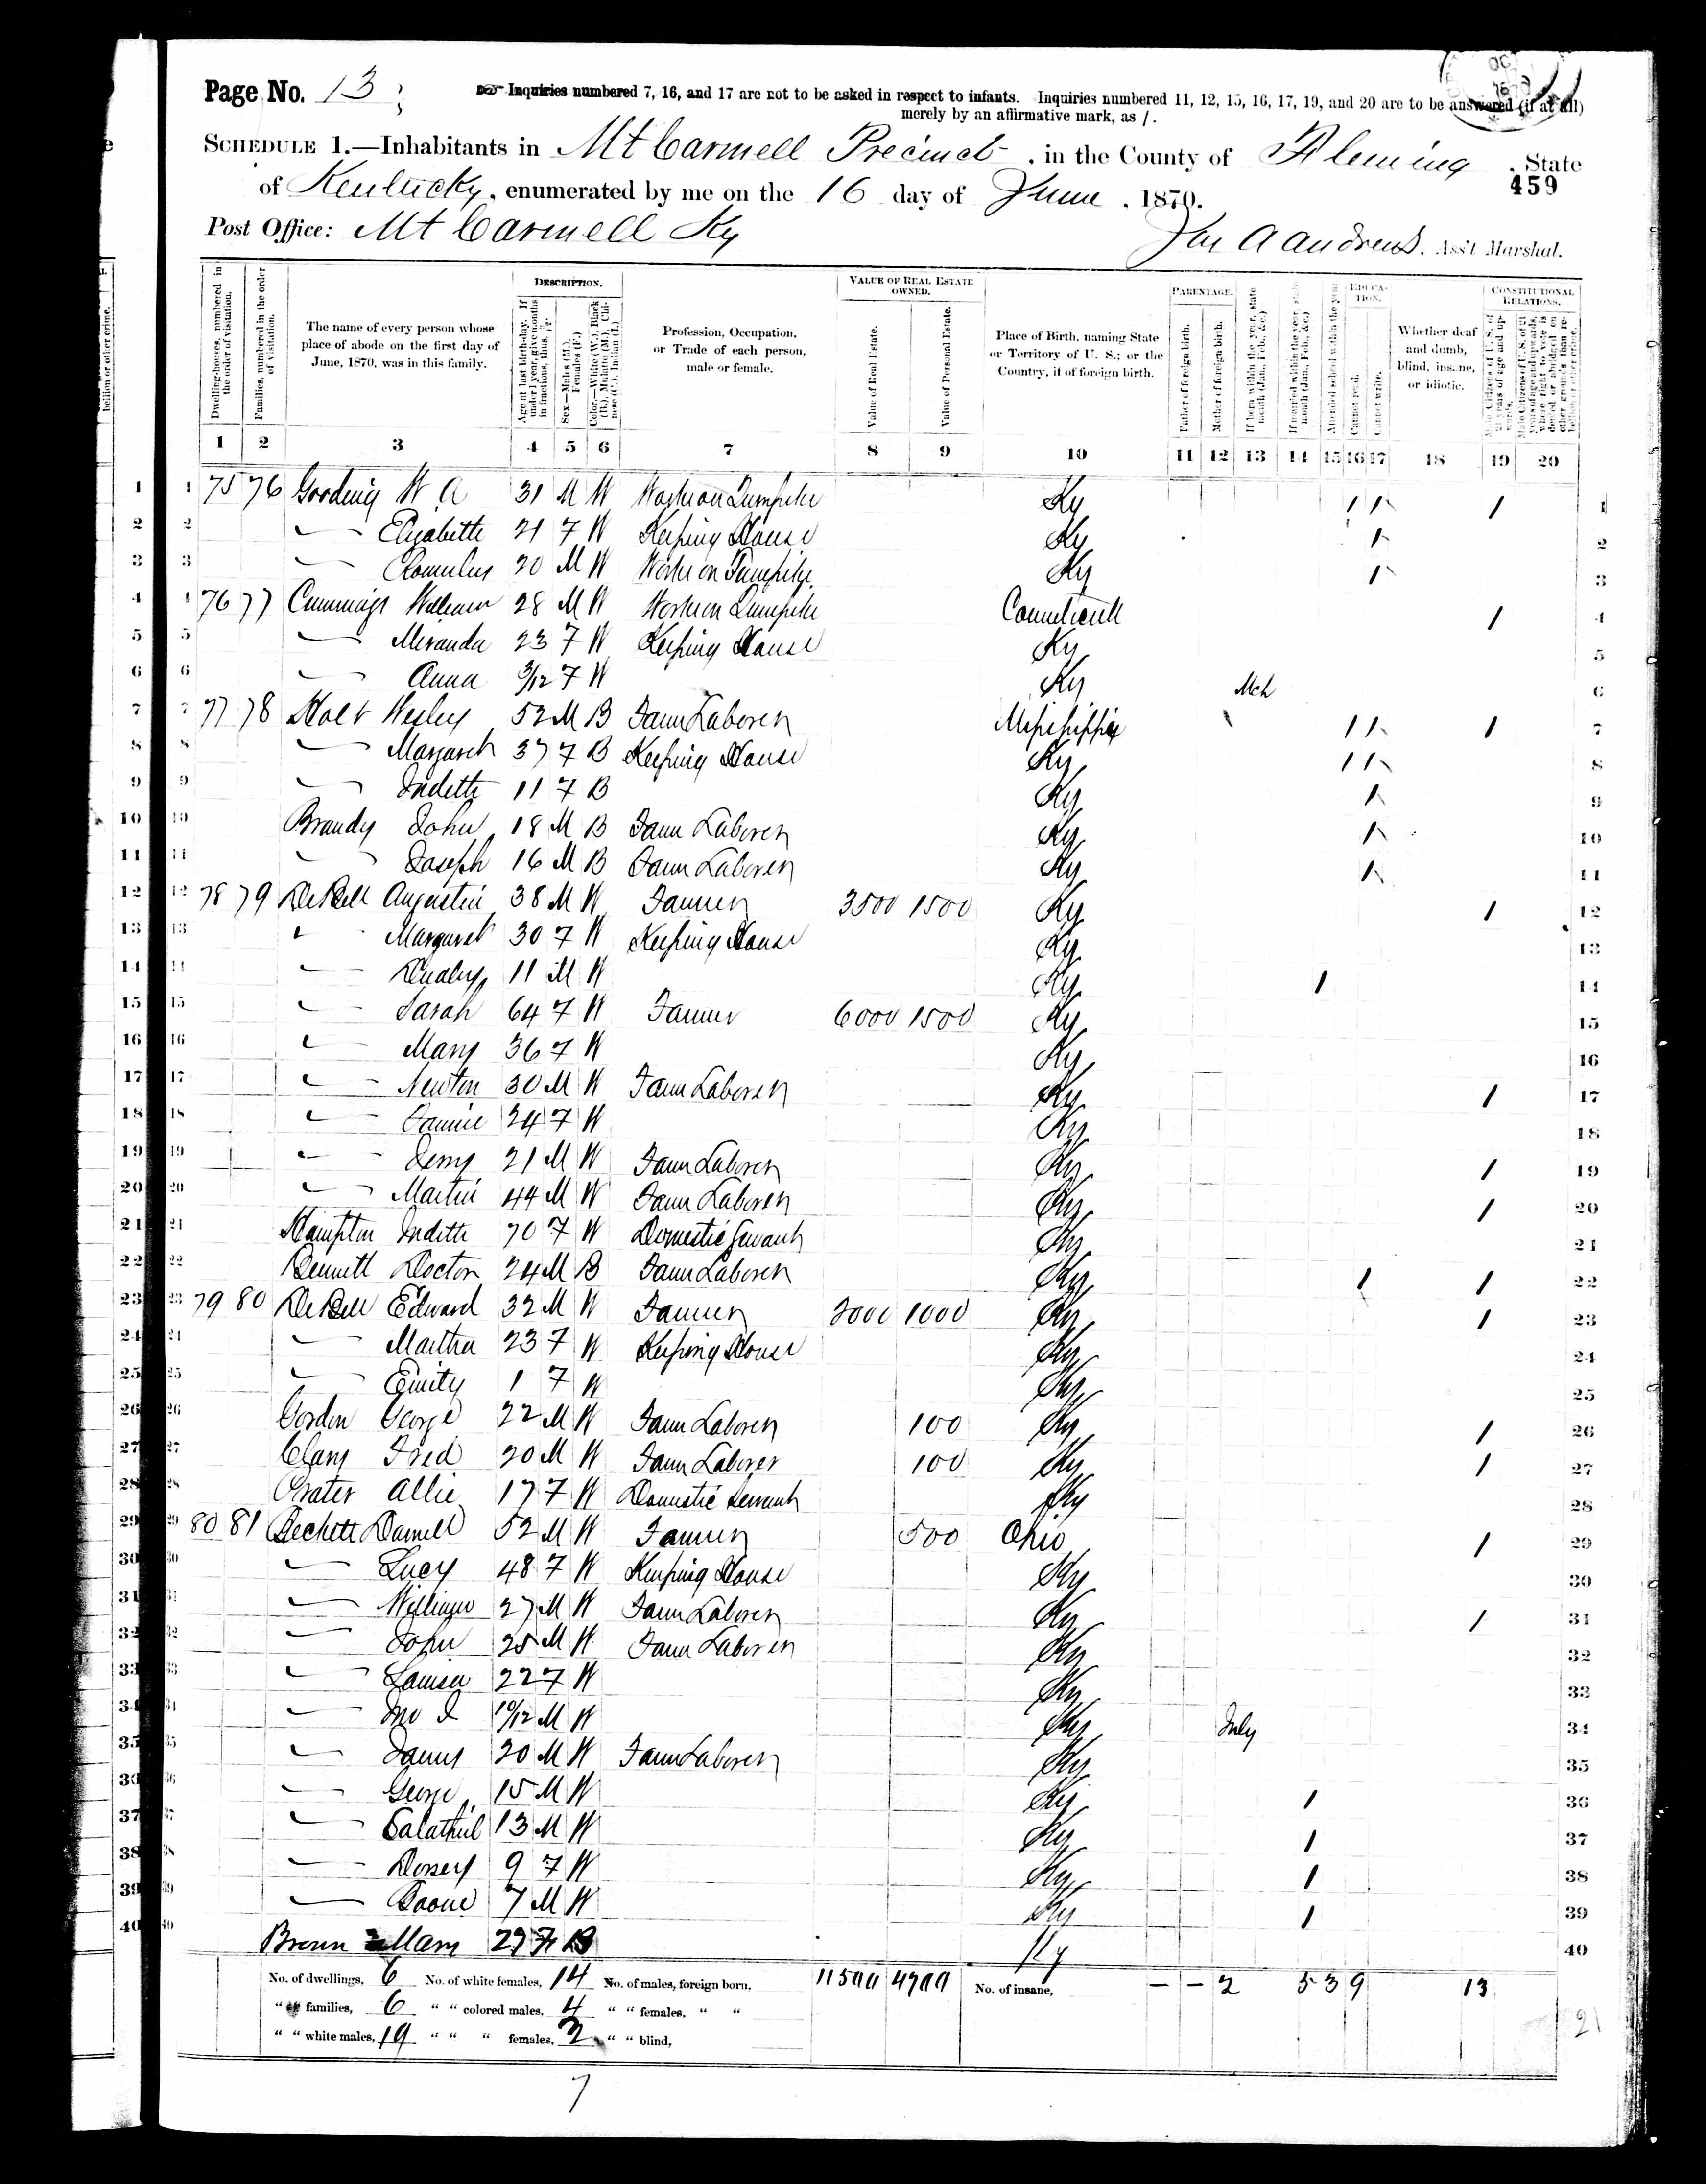 Page No. 13
Inquiries numbered 7, 16, and 17 are not to be asked in respect to infants. Inquiries numbered 11, 12, 15, 16, 17, 19, and 20 are to be answered (if at all)
merely by an affirmative mark, as /.
SCHEDULE 1.—Inhabitants in Mt Carmell Precinct, in the County of Fleming, State
of Kentucky, enumerated by me on the 16 day of June, 1870.
459
Post Office: Mt Carmell Ky
A Andrews, Ass't Marshal.
Dwelling-houses, numbered in the order of visitation.
Families, numbered in the order of visitation.
The name of every person whose place of abode on the first day of June, 1870, was in this family.
DESCRIPTION.
Age at last birth-day. If under 1 year, give months in fractions, thus, 3/12.
Sex.—Males (M.), Females (F.)
Color.—White (W.), Black (B.), Mulatto (M.), Chinese (C.), Indian (I.)
Profession, Occupation, or Trade of each person, male or female.
VALUE OF REAL ESTATE OWNED.
Value of Real Estate.
Value of Personal Estate.
Place of Birth, naming State or Territory of U. S.; or the Country, if of foreign birth.
PARENTAGE.
Father of foreign birth.
Mother of foreign birth.
If born within the year, state month (Jan., Feb., &c.)
If married within the year, state month (Jan., Feb., &c.)
EDUCATION.
Attended school within the year.
Cannot read.
Cannot write.
Whether deaf and dumb, blind, insane, or idiotic.
CONSTITUTIONAL RELATIONS.
Male Citizens of U. S. of 21 years of age and upwards.
Male Citizens of U. S. of 21 years of age and upwards, where right to vote is denied or abridged on other grounds than rebellion or other crime.
1 2 3 4 5 6 7 8 9 10 11 12 13 14 15 16 17 18 19 20
1 75 76 Gooding W A 31 M W Works on Turnpike Ky / / / 1
2 — Elizabeth 21 F W Keeping House Ky / 2
3 — Romulus 20 M W Works on Turnpike Ky / 3
4 76 77 Cummings William 28 M W Works on Turnpike Connecticutt / 4
5 — Miranda 23 F W Keeping House Ky 5
6 — Anna 3/12 F W Ky Mch 6
7 77 78 Holt Wesley 52 M B Farm Laborer Mississippi / / / 7
8 — Margaret 37 F B Keeping House Ky / / 8
9 — Judeth 11 F B Ky / 9
10 Brandy John 18 M B Farm Laborer Ky / 10
11 — Joseph 16 M B Farm Laborer Ky / 11
12 78 79 DeBell Augustin 38 M W Farmer 3500 1500 Ky / 12
13 — Margaret 30 F W Keeping House Ky 13
14 — Dudley 11 M W Ky / 14
15 — Sarah 64 F W Farmer 6000 1500 Ky 15
16 — Mary 36 F W Ky 16
17 — Newton 30 M W Farm Laborer Ky / 17
18 — Fannie 24 F W Ky 18
19 — Jerry 21 M W Farm Laborer Ky / 19
20 — Martin 44 M W Farm Laborer Ky / 20
21 Hampton Judeth 70 F W Domestic Servant Ky 21
22 Bennett Doctor 24 M B Farm Laborer Ky / / 22
23 79 80 DeBell Edward 32 M W Farmer 2000 1000 Ky / 23
24 — Martha 23 F W Keeping House Ky 24
25 — 1 F W Ky 25
26 Gordon George 22 M W Farm Laborer 100 Ky / 26
27 Clary Fred 20 M W Farm Laborer 100 Ky / 27
28 Prater Allie 17 F W Domestic Servant Ky 28
29 80 81 Beckett Daniell 52 M W Farmer 500 Ohio / 29
30 — Lucy 48 F W Keeping House Ky 30
31 — William 27 M W Farm Laborer Ky / 31
32 — John 25 M W Farm Laborer Ky 32
33 — Louisa 22 F W Ky 33
34 — 10/12 M W Ky July 34
35 — James 20 M W Farm Laborer Ky 35
36 — George 15 M W Ky / 36
37 — Salathiel 13 M W Ky / 37
38 — Dorsey 9 F W Ky / 38
39 — Boone 7 M W Ky / 39
40 Brown Mary 29 F B Ky 40
No. of dwellings, 6 No. of white females, 14 No. of males, foreign born, 11500 4700 No. of insane, — — 2 5 3 9 13
" " families, 6 " " colored males, 4 " " females, " "
" " white males, 19 " " " females, 3 " " blind,
21
7